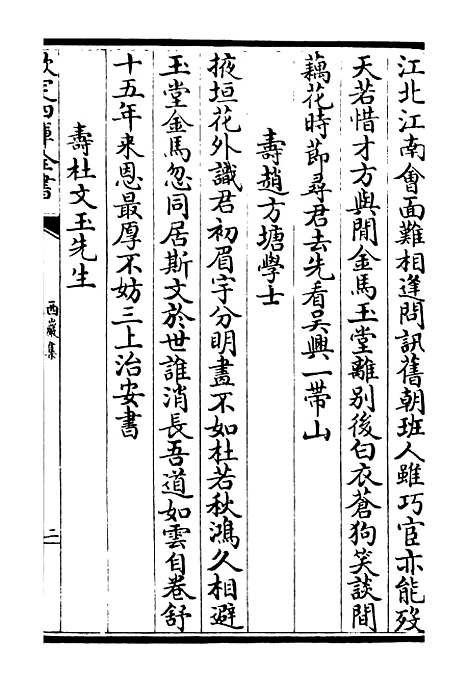 江北江南會面難相逢問訊舊朝班人雖巧官亦能歿
天若惜才方與閒金馬玉堂離别後白衣蒼狗笑談間
藕花時節尋君去先看吴興一帶山
壽趙方塘學士
掖垣花外識君初眉宇分明畫不如杜若秋鴻久相避
玉堂金馬忽同居斯文於世誰消長吾道如雲自卷舒
十五年来恩最厚不妨三上治安書
壽杜文玉先生
欽定四庫全書
西巖集
二